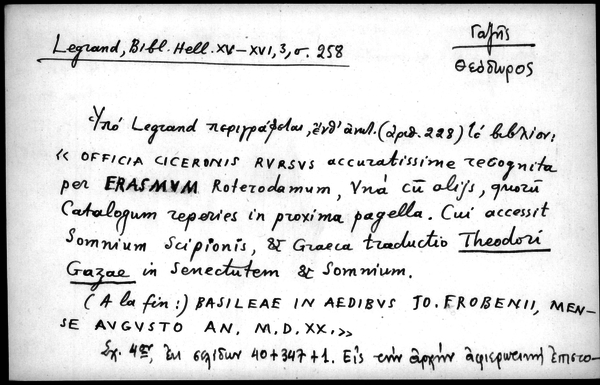 Legrand, Bibl. Hell. XV–XVI, 3, σ. 258
Γαζῆς
Θεόδωρος
Ὑπό Legrand περιγράφεται, ἔνθ' ἀνωτ. (ἀριθ. 228) τό βιβλίον:
« OFFICIA CICERONIS RVRSVS accuratissime recognita
per ERASMVM Roterodamum, Vná cū alijs, quorū
Catalogum reperies in proxima pagella. Cui accessit
Somnium Scipionis, & Graeca traductio Theodori
Gazae in Senectutem & Somnium.
(A la fin:) BASILEAE IN AEDIBVS JO. FROBENII, MEN–
SE AVGVSTO AN. M.D.XX.»
Σχ. 4ον, ἐκ σελίδων 40+347+1. Εἰς τήν ἀρχήν ἀφιερωτική ἐπιστο–